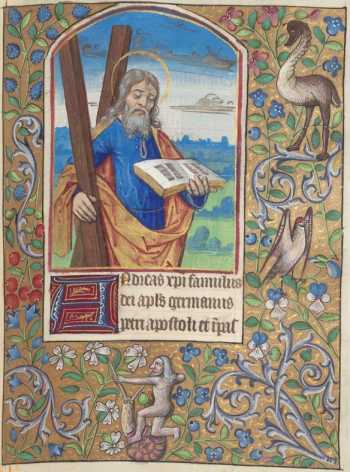 ANdreas xpi famulus
dei apls germanus
petri apostoli et